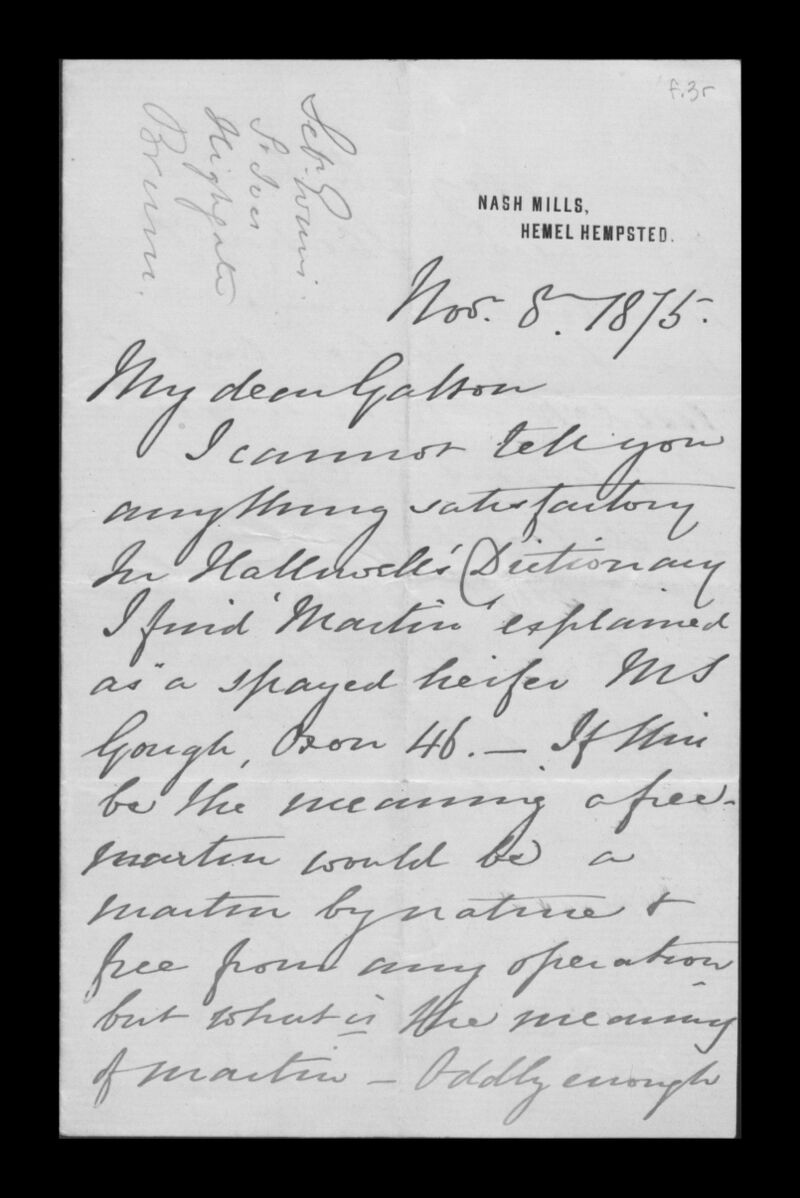 f.3r
Seb. Evans.
St Ives
Highgate
Brum.
NASH MILLS,
HEMEL HEMPSTED.
Nov. 8. 1875.
My dear Galton
I cannot tell you
anything satisfactory
In Halliwell's Dictionary
I find 'Martin' explained
as "a spayed heifer MS
Gough, Oxon 46. — If this
be the meaning a free-
martin would be a
martin by nature &
free from any operation
but what is the meaning
of martin — Oddly enough